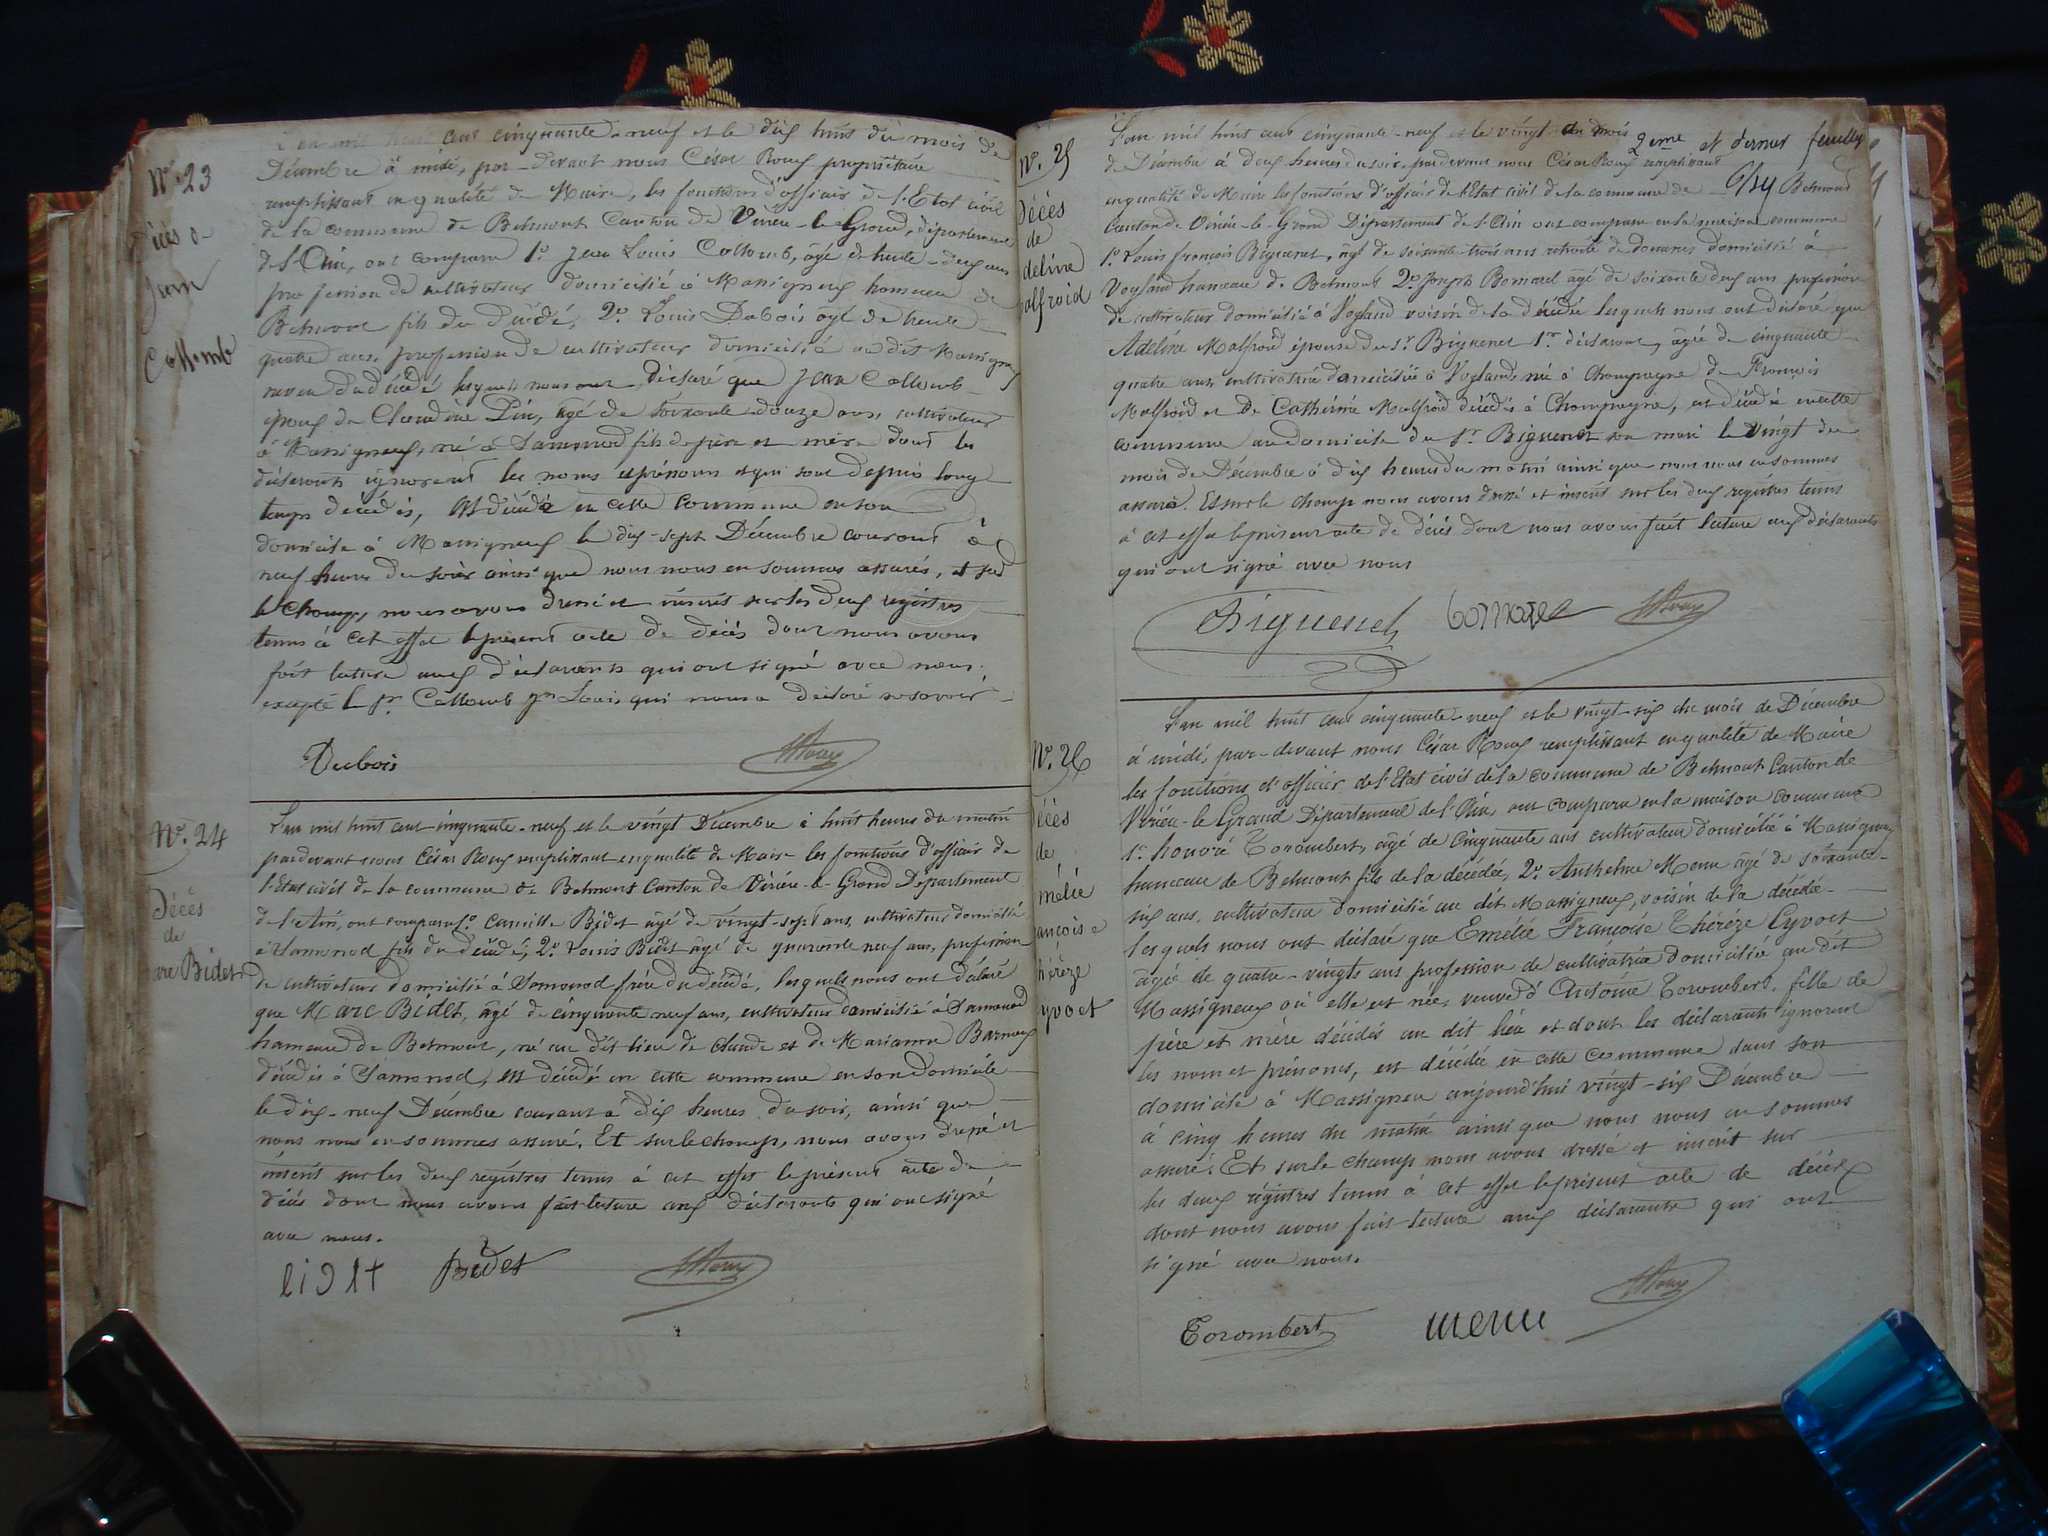 L'an mil huit cent cinquante-neuf et le dix huit du mois de
N°. 23
Décembre à midi, par-devant nous César Roux propriétaire
remplissant en qualité de Maire, les fonctions d'officier de l'Etat civil
Décès de
Jean
Collomb
de la commune de Belmont Canton de Virieu-le-Grand, département
de l'Ain, ont comparu 1°. Jean Louis Collomb, âgé de trente-deux ans
profession de cultivateur domicilié à Massigneux hameau de
Belmont fils du décédé, 2°. Louis Dubois âgé de trente
quatre ans, profession de cultivateur domicilié au dit Massigneux
neveu du décédé lesquels nous ont déclaré que Jean Collomb
époux de Claudine Pin, âgé de soixante douze ans, cultivateur
à Massigneux, né à Samonod fils de père et mère dont les
déclarants ignorent les noms et prénoms et qui sont depuis long
temps décédés, est décédé en cette commune en son
domicile à Massigneux le dix-sept Décembre courant à
neuf heures du soir ainsi que nous nous en sommes assurés, et sur
le champ, nous avons dressé et inscrit sur les deux registres
tenus à cet effet le présent acte de décès dont nous avons
fait lecture aux déclarants qui ont signé avec nous.
excepté le Sr. Collomb Jn Louis qui nous a déclaré ne savoir
Dubois Roux
N°. 24
Décès
de
Marc Bidet
L'an mil huit cent cinquante-neuf et le vingt Décembre à huit heures du matin
pardevant nous César Roux remplissant en qualité de Maire les fonctions d'officier de
l'Etat civil de la commune de Belmont Canton de Virieu-le-Grand Département
de l'Ain, ont comparu 1°. Camille Bidet âgé de vingt-sept ans, cultivateur domicilié
à Samonod fils du décédé, 2°. Louis Bidet âgé de quarante neuf ans, profession
de cultivateur domicilié à Samonod frère du décédé, lesquels nous ont déclaré
que Marc Bidet, âgé de cinquante neuf ans, cultivateur domicilié à Samonod
hameau de Belmont, né au dit lieu de Claude et de Marianne
décédés à Samonod, est décédé en cette commune en son domicile
le dix-neuf Décembre courant à dix heures du soir, ainsi que
nous nous en sommes assuré. Et sur le champ, nous avons dressé et
inscrit sur les deux registres tenus à cet effet le présent acte de
décès dont nous avons fait lecture aux déclarants qui ont signé
avec nous.
Bidet Bidet Roux
N°. 25
Décès
de
Adeline
Malfroid
L'an mil huit cent cinquante-neuf et le vingt du mois
2eme et dernier feuillet
de Décembre à deux heures du soir, pardevant nous César Roux remplissant
en qualité de Maire les fonctions d'officier de l'Etat civil de la commune de Belmont
Canton de Virieu-le-Grand Département de l'Ain ont comparu en la maison commune
1°. Louis françois Biguenet, âgé de soixante-trois ans retraité de douanes domicilié à
Vogland hameau de Belmont 2°. Joseph Bonnard âgé de soixante deux ans profession
de cultivateur domicilié à Vogland voisin de la décédée lesquels nous ont déclaré que
Adeline Malfroid épouse du Sr. Biguenet 1er. déclarant, âgée de cinquante
quatre ans cultivatrice domiciliée à Vogland née à Champagne de François
Malfroid et de Catherine Malfroid décédés à Champagne, est décédée en cette
commune au domicile du Sr. Biguenet son mari le vingt du
mois de Décembre à dix heures du matin ainsi que nous nous en sommes
assurés. Et sur le champ nous avons dressé et inscrit sur les deux registres tenus
à cet effet le présent acte de décès dont nous avons fait lecture aux déclarants
qui ont signé avec nous
Biguenet bonnard Roux
N°. 26
Décès
de
Emélie
Françoise
Thérèze
Cyvoct
L'an mil huit cent cinquante-neuf et le vingt-six du mois de Décembre
à midi, par-devant nous César Roux remplissant en qualité de Maire
les fonctions d'officier de l'Etat civil de la commune de Belmont Canton de
Virieu-le-Grand Département de l'Ain, ont comparu en la maison commune
1°. honoré Torombert, âgé de cinquante ans cultivateur domicilié à Massigneux
hameau de Belmont fils de la décédée, 2°. Anthelme Menu âgé de soixante-
six ans, cultivateur domicilié au dit Massigneux, voisin de la décédée
lesquels nous ont déclaré que Emélie Françoise Thérèze Cyvoct
âgée de quatre-vingts ans profession de cultivatrice domiciliée au dit
Massigneux où elle est née, veuve d'Antoine Torombert, fille de
père et mère décédés au dit lieu et dont les déclarants ignorent
les nom et prénoms, est décédée en cette commune dans son
domicile à Massigneu aujourd'hui vingt-six Décembre
à cinq heures du matin ainsi que nous nous en sommes
assuré. Et sur le champ nous avons dressé et inscrit sur
les deux régistres tenus à cet effet le présent acte de décès
dont nous avons fait lecture aux déclarants qui ont
signé avec nous.
Torombert menu Roux